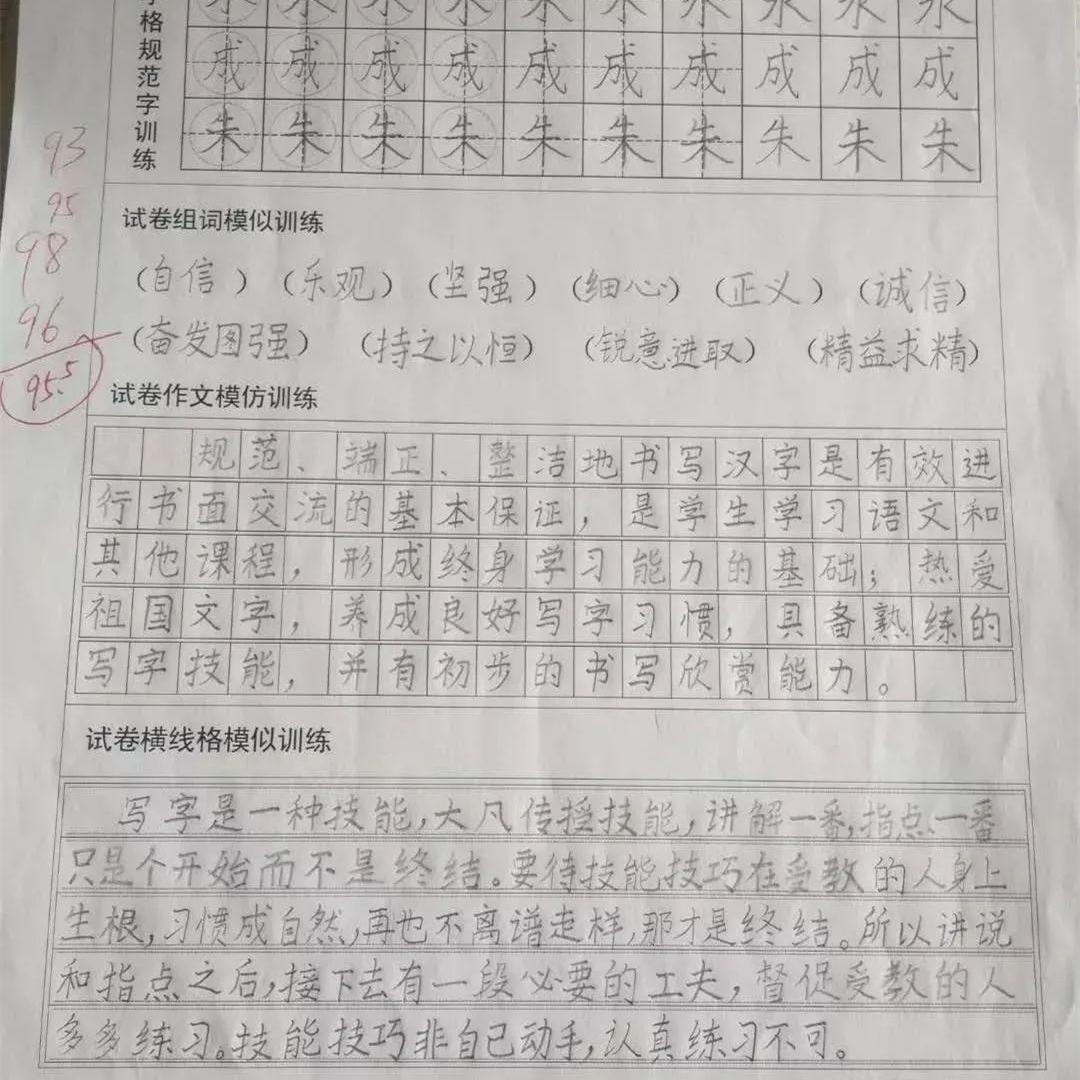 永 永 永 永 永 永 永 永 永 永
成 成 成 成 成 成 成 成 成 成
朱 朱 朱 朱 朱 朱 朱 朱 朱 朱
格规范字训练
93
95
98
96
95.5
试卷组词模似训练
（自信）（乐观）（坚强）（细心）（正义）（诚信）
（奋发图强）（持之以恒）（锐意进取）（精益求精）
试卷作文模仿训练
规范、端正、整洁地书写汉字是有效进
行书面交流的基本保证，是学生学习语文和
其他课程，形成终身学习能力的基础；热爱
祖国文字，养成良好写字习惯，具备熟练的
写字技能，并有初步的书写欣赏能力。
试卷横线格模似训练
写字是一种技能，大凡传授技能，讲解一番，指点一番
只是个开始而不是终结。要待技能技巧在受教的人身上
生根，习惯成自然，再也不离谱走样，那才是终结。所以讲说
和指点之后，接下去有一段必要的工夫，督促受教的人
多多练习。技能技巧非自己动手，认真练习不可。